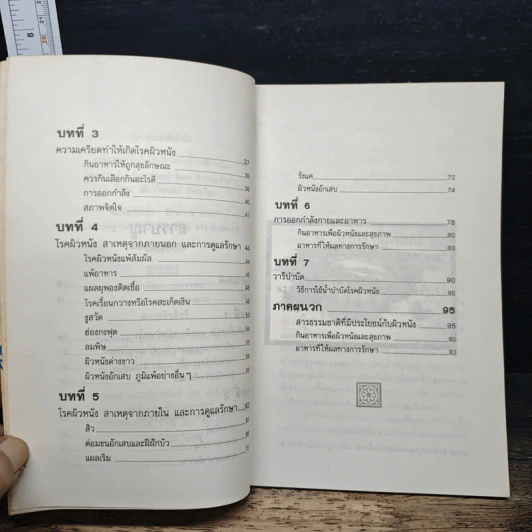 บทที่ 3
ความเครียดทำให้เกิดโรคผิวหนัง 37
กินอาหารให้ถูกสุขลักษณะ 38
ควรกินเลือกกินอะไรดี 39
การออกกำลัง 40
สภาพจิตใจ 41
บทที่ 4
โรคผิวหนัง สาเหตุจากภายนอก และการดูแลรักษา 44
โรคผิวหนังแพ้สัมผัส
แพ้อาหาร
แผลผุพองติดเชื้อ
โรคเรื้อนกวางหรือโรคสะเก็ดเงิน
งูสวัด
ฮ่องกงฟุต
ลมพิษ
ผิวหนังด่างขาว
ผิวหนังอักเสบ ภูมิแพ้อย่างอื่น ๆ
บทที่ 5
โรคผิวหนัง สาเหตุจากภายใน และการดูแลรักษา
สิว
ต่อมขนอักเสบและฝีฝักบัว
แผลเริม
รังแค 73
ผิวหนังอักเสบ 74
บทที่ 6
การออกกำลังกายและอาหาร 78
กินอาหารเพื่อผิวหนังและสุขภาพ 80
อาหารที่ให้ผลทางการรักษา 83
บทที่ 7
วารีบำบัด 90
วิธีการใช้น้ำบำบัดโรคผิวหนัง 95
ภาคผนวก 95
สารธรรมชาติที่มีประโยชน์กับผิวหนัง 95
กินอาหารเพื่อผิวหนังและสุขภาพ 80
อาหารที่ให้ผลทางการรักษา 83